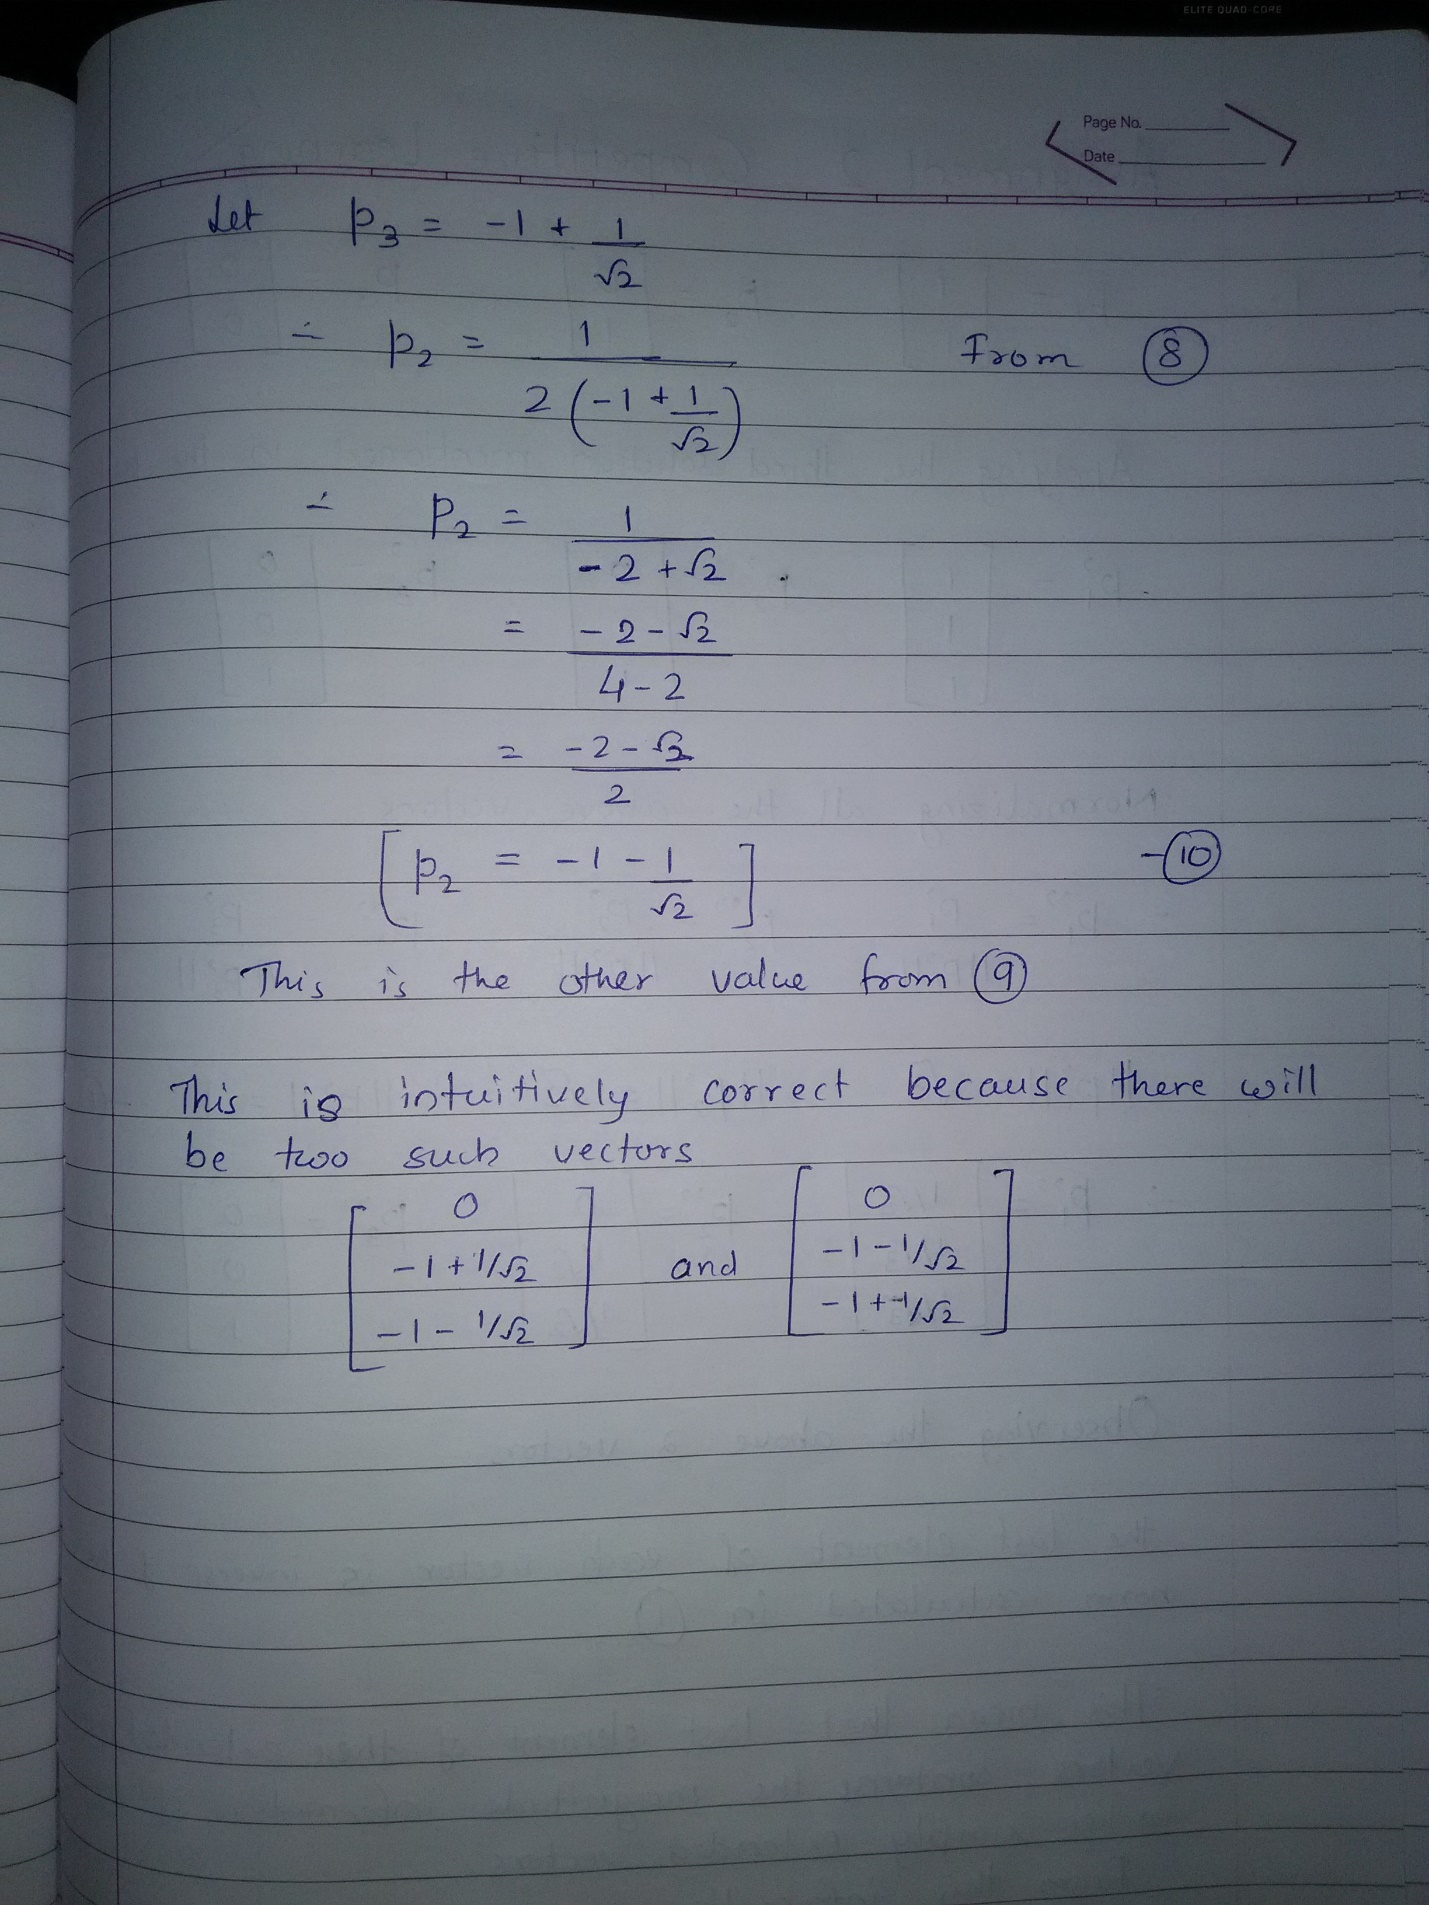 ELITE QUAD-CORE
Page No.
Date
Let p₃ = -1 + 1/√2
∴ p₂ = 1/(2(-1 + 1/√2)) From ⑧
∴ p₂ = 1/(-2 + √2)
= (-2 - √2)/(4 - 2)
= (-2 - √2)/2
[p₂ = -1 - 1/√2] - ⑩
This is the other value from ⑨
This is intuitively correct because there will
be two such vectors
[0, -1 + 1/√2, -1 - 1/√2] and [0, -1 - 1/√2, -1 + 1/√2]